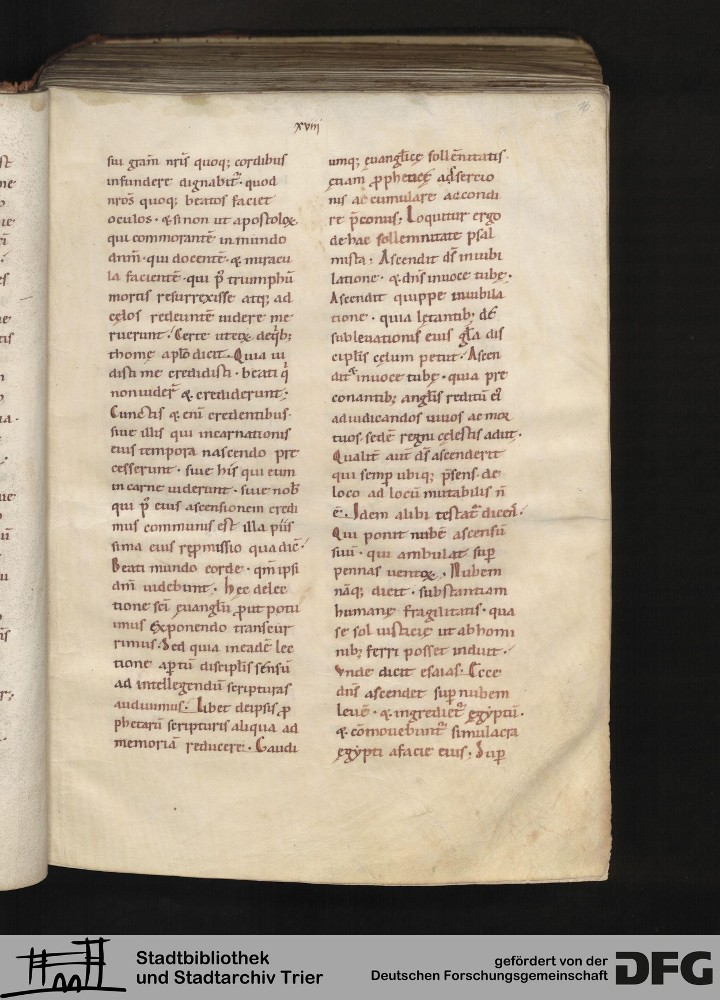 xviii
36.
sui gram nris quoq; cordibus
infundere dignabit · quod
nros quoq; beatos faciet
oculos · & si non ut apostolox
qui commorante in mundo
dnm · qui docente · & miracu
la faciente · qui p triumphu
mortis resurrexisse atq; ad
cęlos redeunte uidere me
ruerunt · Certe utex deqb;
thome aplo dicit · Quia ui
disti me credidisti · beati q
non uider & crediderunt ;
Cunctis & eni credentibus ·
siue illis qui incarnationis
eius tempora nascendo pre
cesserunt · siue his qui eum
in carne uiderunt · siue nob
qui p eius ascensionem credi
mus communis est illa piis
sima eius repmissio qua dic ·
Beati mundo corde · qm ipsi
dm uidebunt · Hec delec
tione sci euanglii put potu
imus exponendo transcur
rimus · Sed quia incade lec
tione aptu disciplis sensu
ad intellegendu scripturas
audiuimus · Libet deipsis p
phetaru scripturis aliqua ad
memoria reducere · Gaudi
umq; euanglicę sollennitatis ·
ętiam ppheticę adsercio
nis accumulare ac condi
re pconiis ; Loquitur ergo
de hac sollemnitate psal
mista · Ascendit ds in iubi
latione · & dns in uoce tubę ·
Ascendit quippe in iubila
tione · quia lętantib; de
subleuationis eius gla dis
ciplis cęlum petiit · Ascen
dit & in uoce tubę · quia pre
conantib; anglis reditu ei
ad iudicandos uiuos ac mor
tuos sede regni cęlestis adiit ·
Qualit aut ds ascenderit
qui semp ubiq; psens de
loco ad locu mutabilis n
ē · Idem alibi testat dicens ·
Qui ponit nube ascensu
suu · qui ambulat sup
pennas uentox · Nubem
naq; dicit · substantiam
humanę fragilitatis · qua
se sol iusticię ut ab homi
nib; ferri posset induit ·
Vnde dicit esaias · Ecce
dns ascendet sup nubem
leue · & ingrediet ęgyptu ·
& comouebunt simulacra
ęgypti a facie eius · Sup
Stadtbibliothek
und Stadtarchiv Trier
gefördert von der
Deutschen Forschungsgemeinschaft
DFG